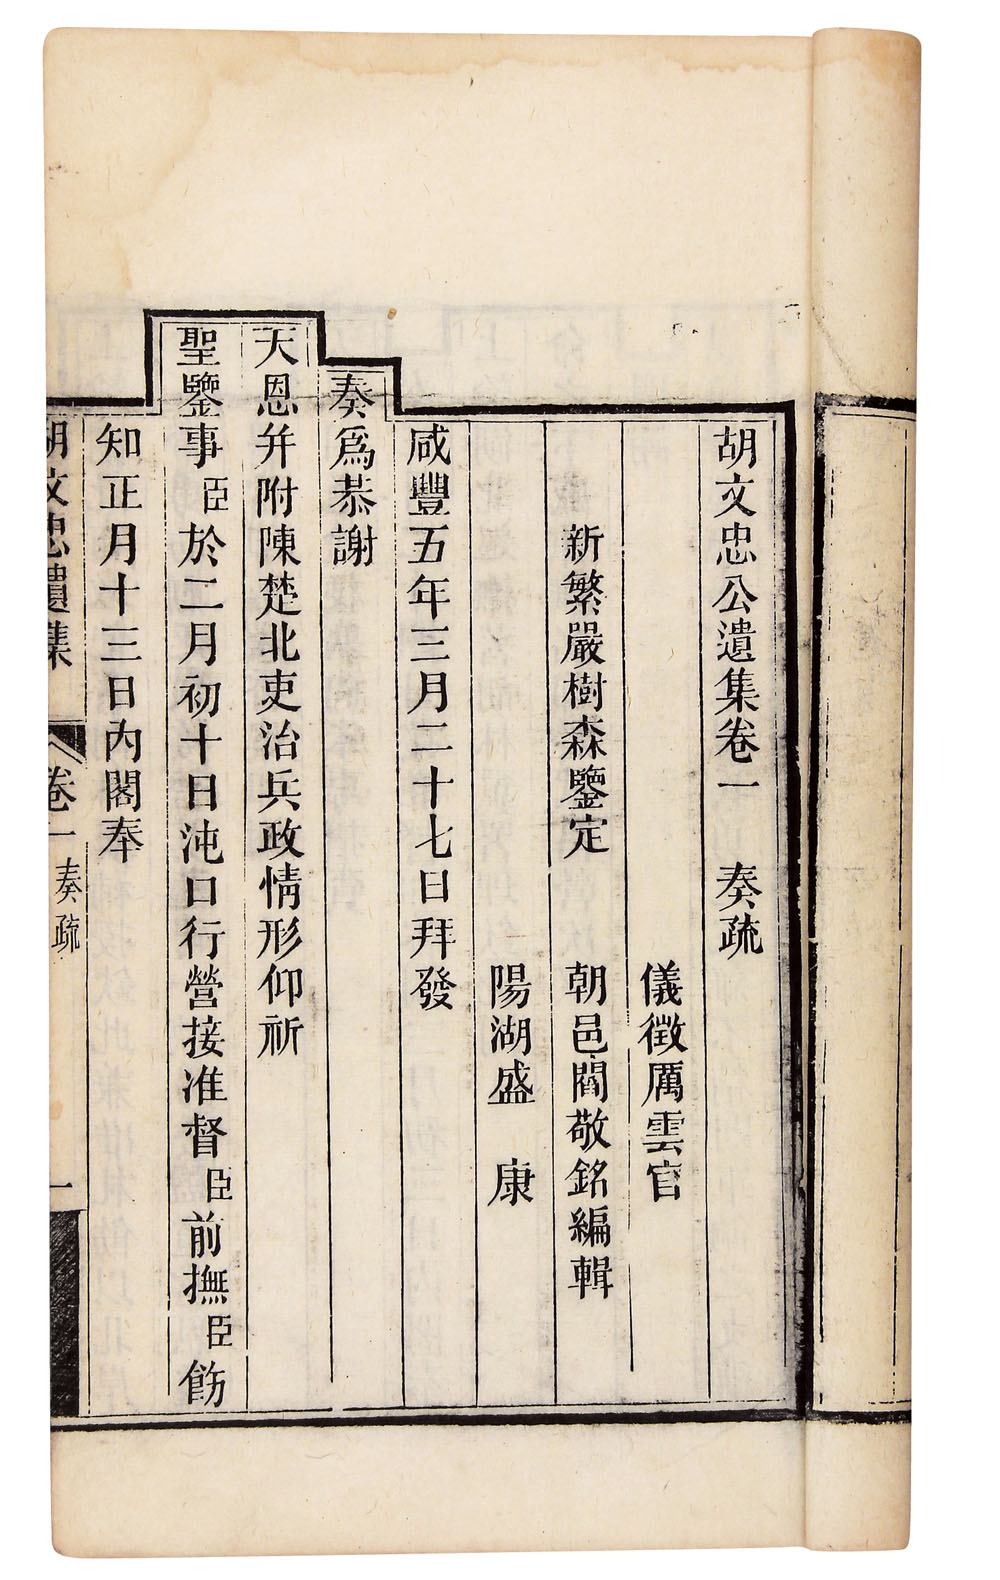 胡文忠公遺集卷一　奏疏
儀徵厲雲官
新繁嚴樹森鑒定　朝邑閻敬銘編輯
陽湖盛　康
咸豐五年三月二十七日拜發
奏爲恭謝
天恩并附陳楚北吏治兵政情形仰祈
聖鑒事臣於二月初十日沌口行營接准督臣前撫臣飭
知正月十三日內閣奉
胡文忠遺集　卷一　奏疏　一